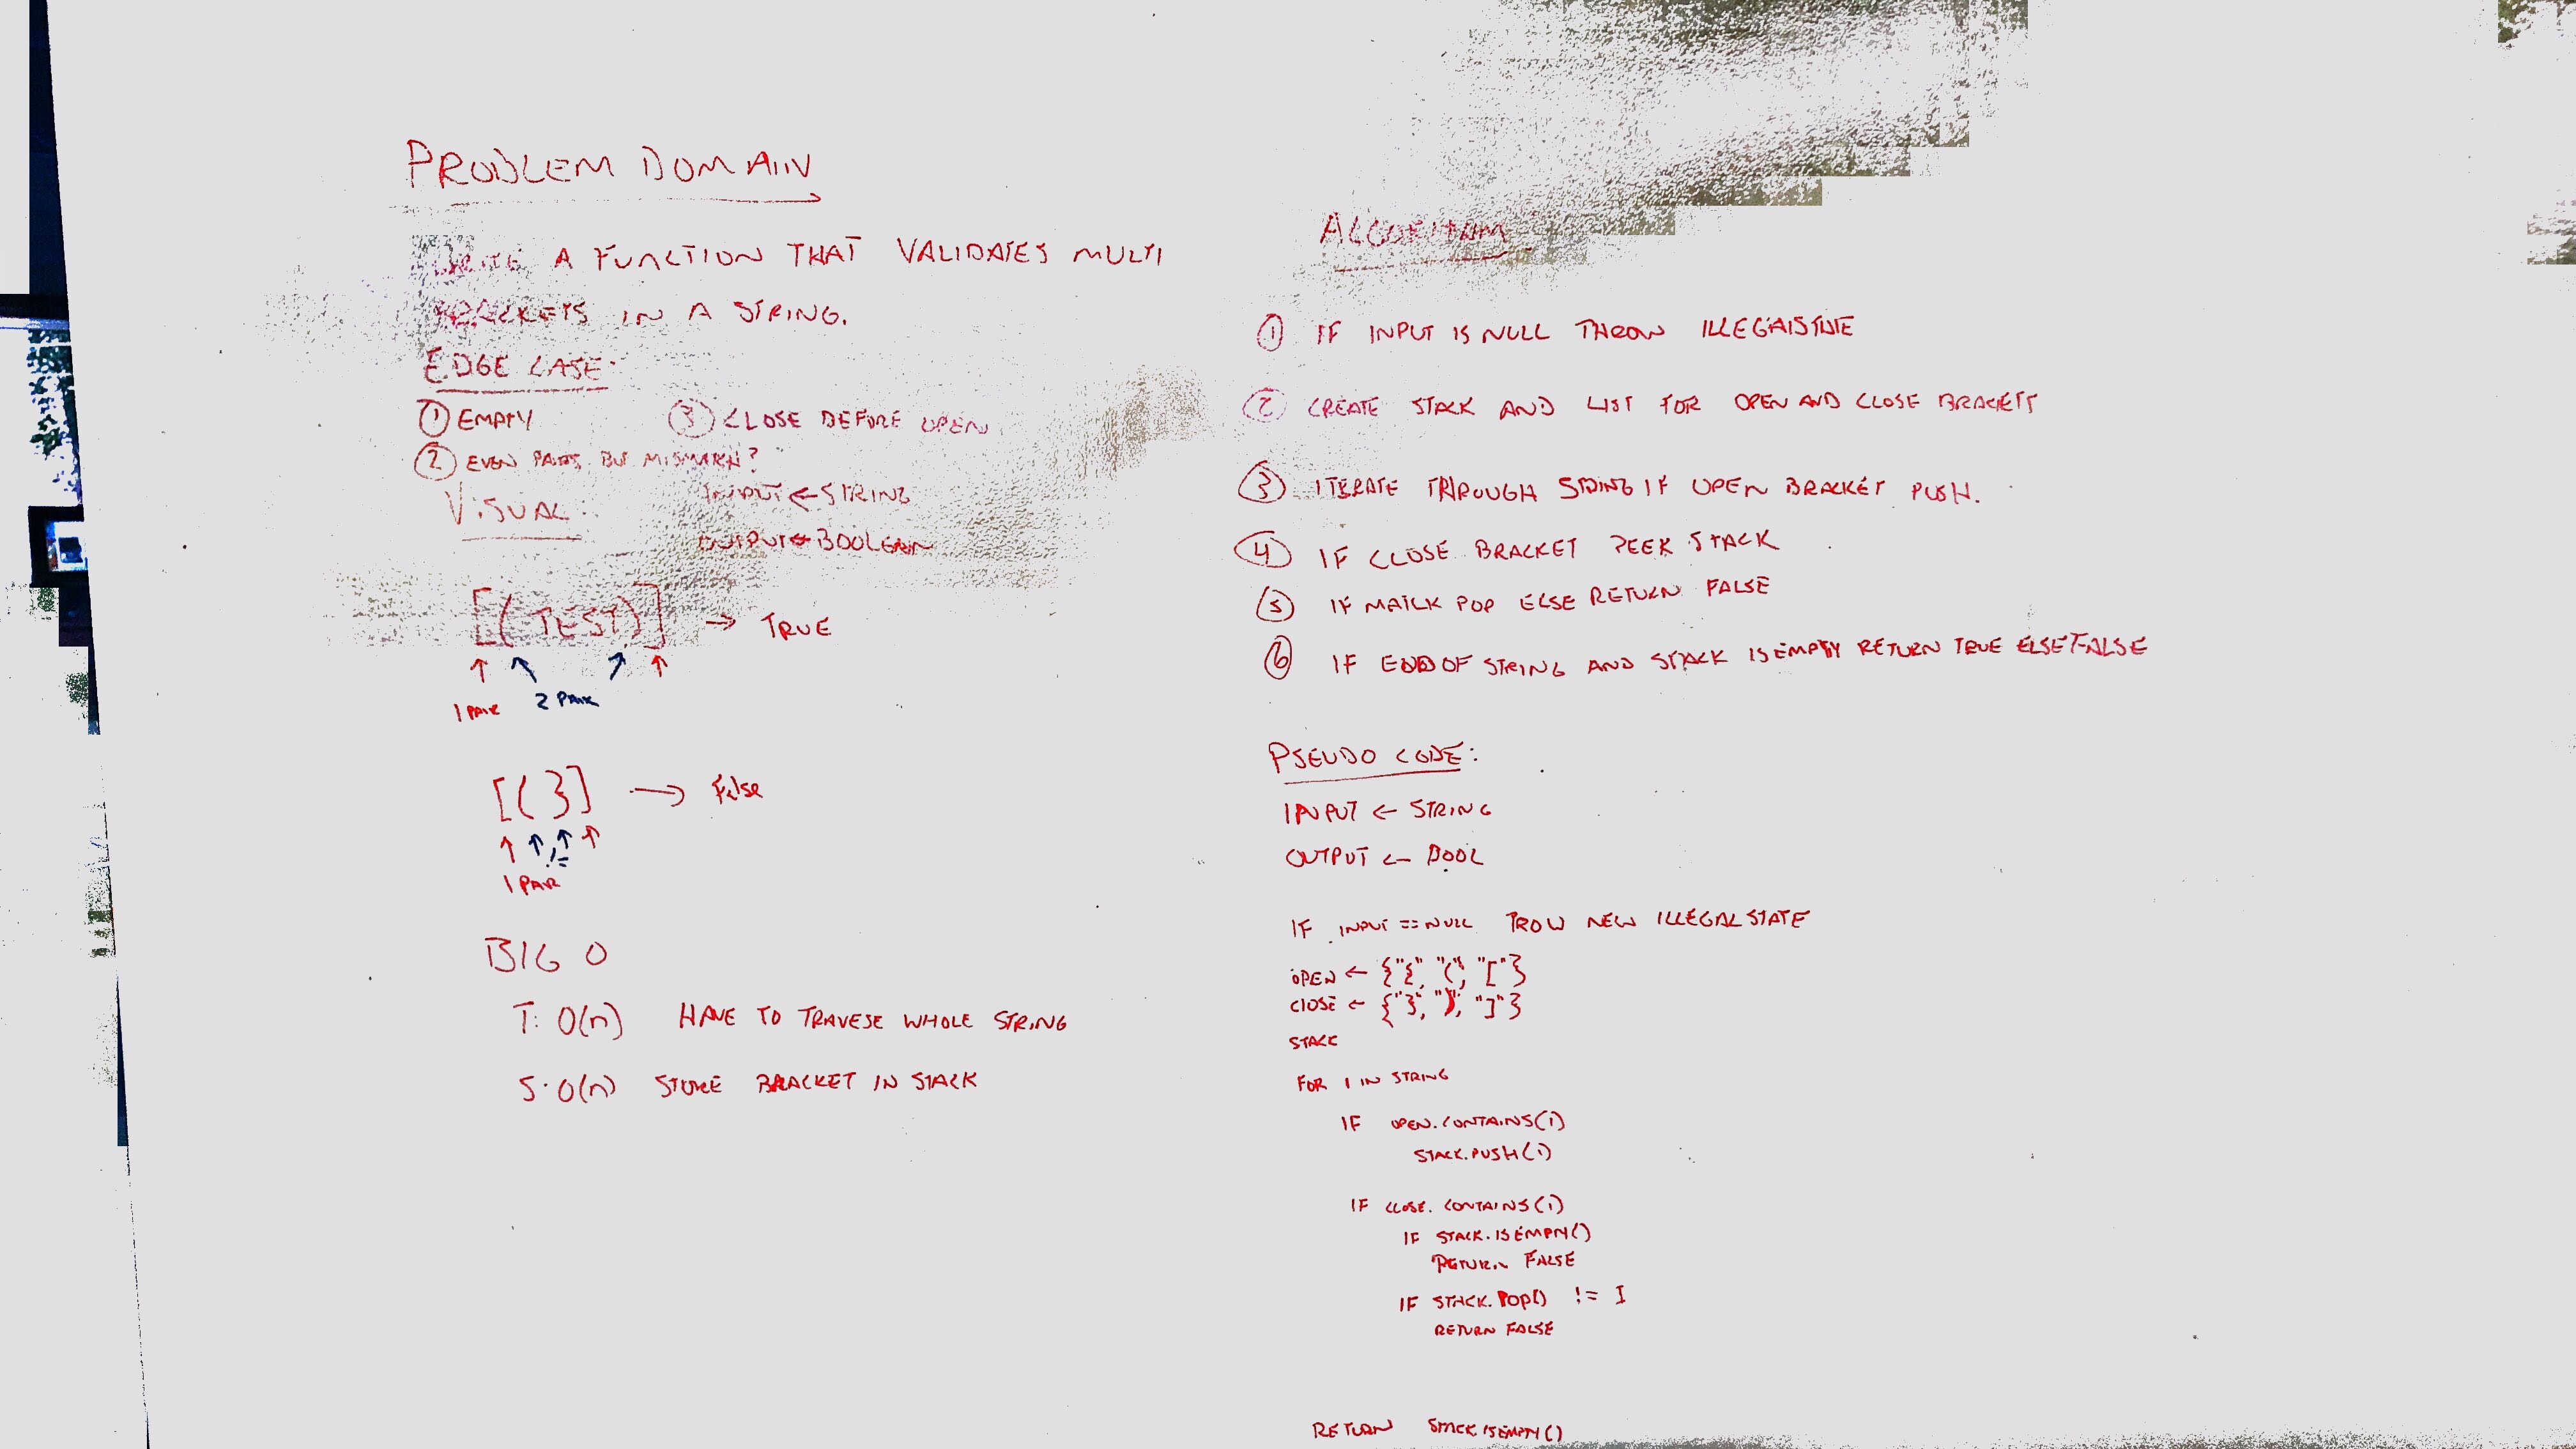 PROBLEM DOMAIN
WRITE A FUNCTION THAT VALIDATES MULTI
BRACKETS IN A STRING.
EDGE CASE
① EMPTY
② EVEN PAIRS BUT MISMATCH?
③ CLOSE BEFORE OPEN
INPUT ← STRING
OUTPUT ← BOOLEAN
VISUAL
[(TEST)] → TRUE
1 PAIR 2 PAIR
[(}] → False
!=
1 PAIR
BIG O
T: O(n) HAVE TO TRAVESE WHOLE STRING
S: O(n) STORE BRACKET IN STACK
ALGORITHM
① IF INPUT IS NULL THROW ILLEGALSTATE
② CREATE STACK AND LIST FOR OPEN AND CLOSE BRACKETS
③ ITERATE THROUGH STRING IF OPEN BRACKET PUSH.
④ IF CLOSE BRACKET PEEK STACK
⑤ IF MATCH POP ELSE RETURN FALSE
⑥ IF END OF STRING AND STACK IS EMPTY RETURN TRUE ELSE FALSE
PSEUDO CODE:
INPUT ← STRING
OUTPUT ← BOOL
IF INPUT == NULL TROW NEW ILLEGALSTATE
OPEN ← {"{", "(", "["}
CLOSE ← {"}", ")", "]"}
STACK
FOR I IN STRING
IF OPEN.CONTAINS(I)
STACK.PUSH(I)
IF CLOSE.CONTAINS(I)
IF STACK.ISEMPTY()
RETURN FALSE
IF STACK.POP() != I
RETURN FALSE
RETURN STACK.ISEMPTY()